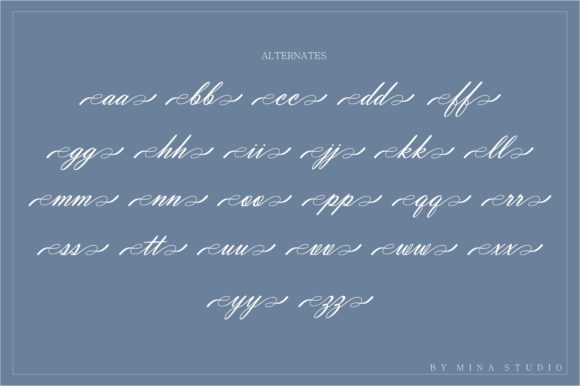 ALTERNATES
aa bb cc dd ff
gg hh ii jj kk ll
mm nn oo pp qq rr
ss tt uu vv ww xx
yy zz
BY MINA STUDIO